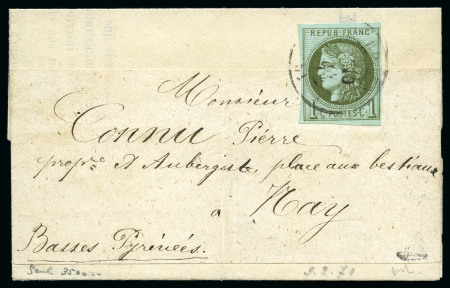 REPUB. FRANC.
1 C. POSTES C. 1
Monsieur
Connu Pierre
propre et Aubergiste, place aux bestiaux
a
Nay
Basses Pyrénées.